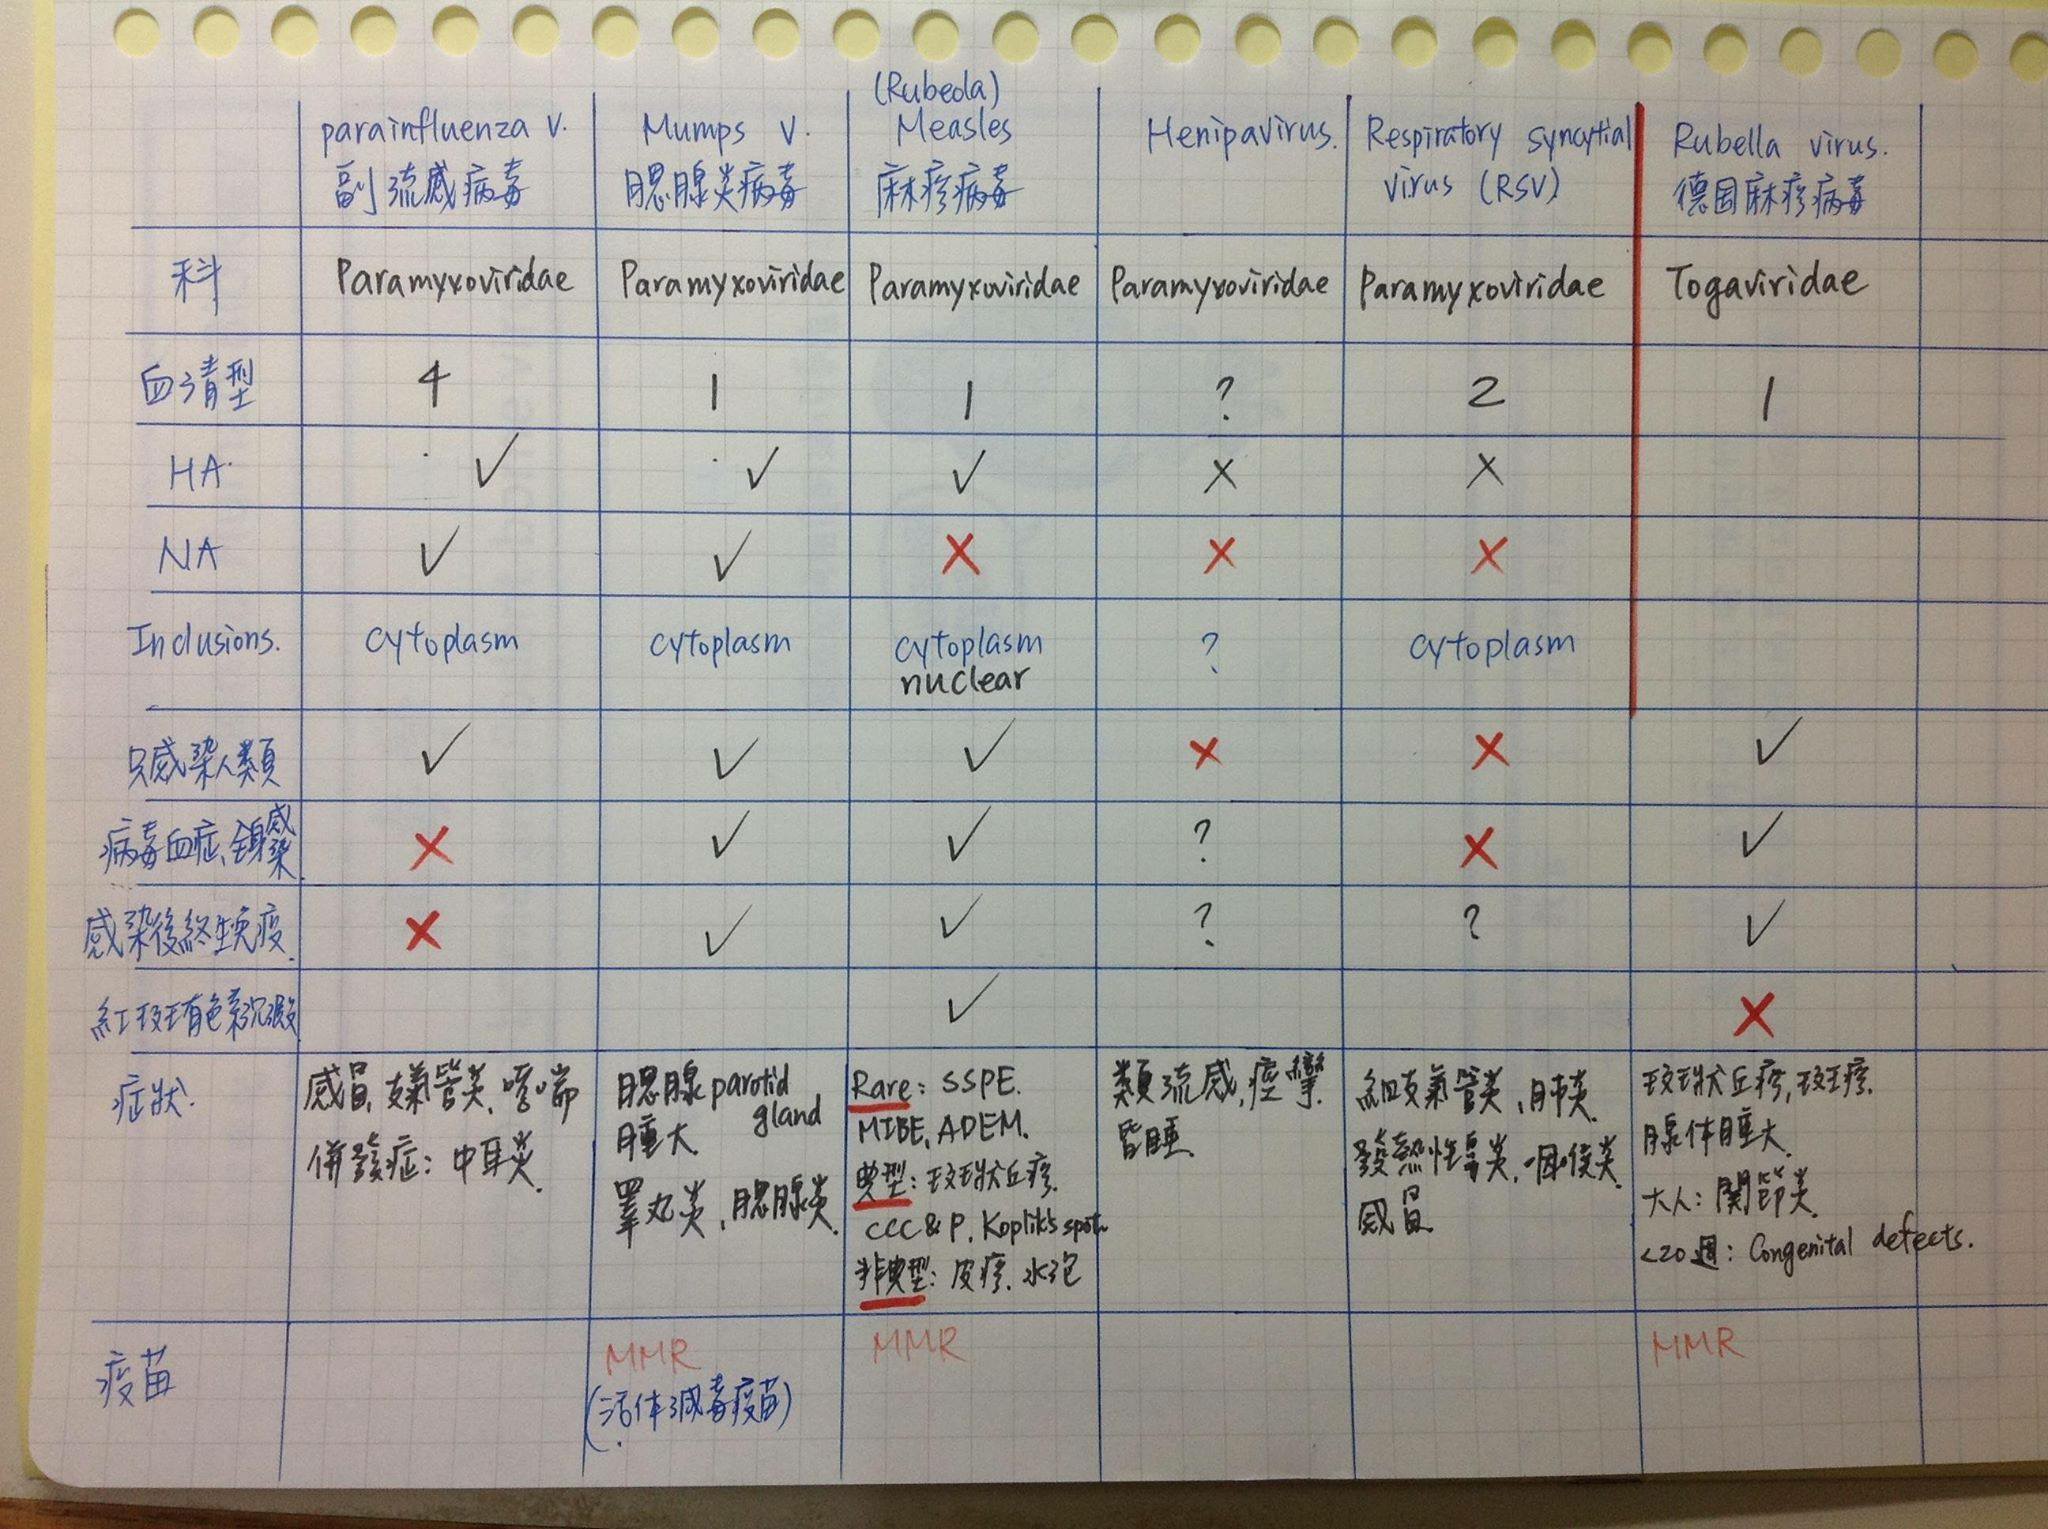 (Rubeola)
parainfluenza v. Mumps v. Measles Henipavirus. Respiratory syncytial Rubella virus.
副流感病毒 腮腺炎病毒 麻疹病毒 virus (RSV) 德国麻疹病毒
科 Paramyxoviridae Paramyxoviridae Paramyxoviridae Paramyxoviridae Paramyxoviridae Togaviridae
血清型 4 1 1 ? 2 1
HA. ✓ ✓ ✓ × ×
NA ✓ ✓ × × ×
Inclusions. cytoplasm cytoplasm cytoplasm ? cytoplasm
nuclear
只感染人類 ✓ ✓ ✓ × × ✓
病毒血症、全身感染 × ✓ ✓ ? × ✓
感染後終生免疫. × ✓ ✓ ? ? ✓
紅斑有色素沉澱 ✓ ×
症狀.
感冒, 支氣管炎, 哮喘
併發症: 中耳炎.
腮腺 parotid
腫大 gland
睪丸炎、腮腺炎.
Rare: SSPE.
MIBE, ADEM.
典型: 斑狀丘疹.
CCC & P, Koplik's spot.
非典型: 皮疹. 水泡
類流感, 痙攣.
昏睡.
細支氣管炎、肺炎.
發熱性鼻炎、咽喉炎
感冒
斑狀丘疹, 斑疹.
腺体腫大.
大人: 関節炎.
<20週: Congenital defects.
疫苗 MMR MMR MMR
(活体減毒疫苗)